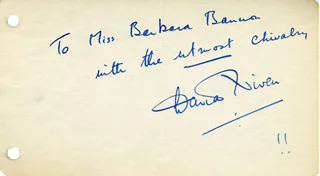 To Miss Barbara Bannon
with the utmost chivalry
David Niven
!!